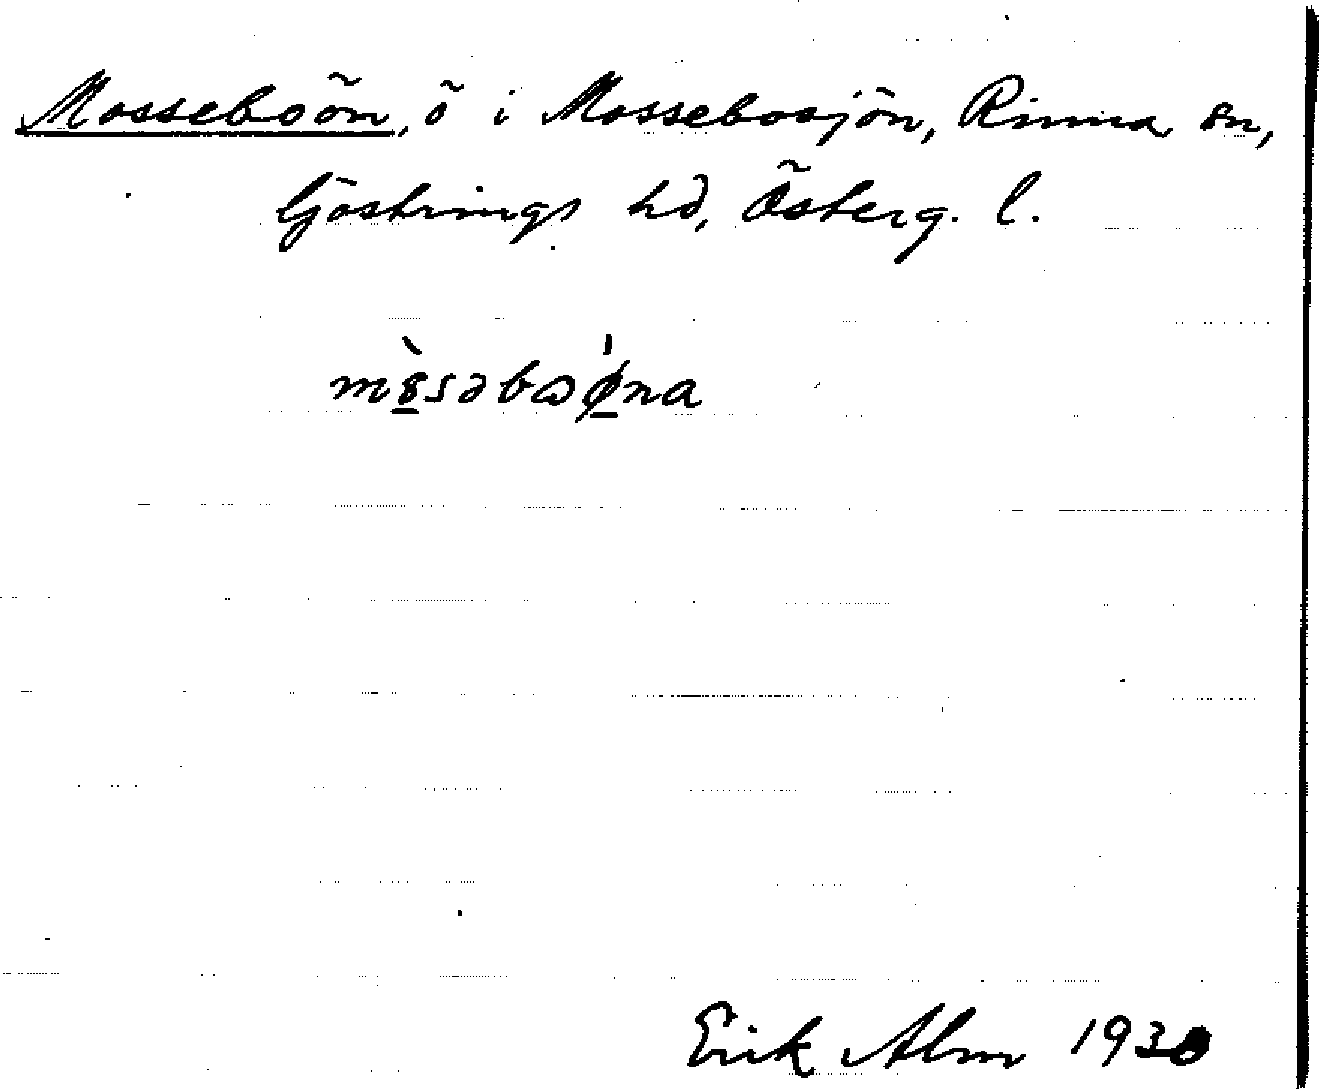 Mosseboön, ö i Mossebosjön, Rinna sn,
Göstrings hd, Österg. l.
Erik Alm 1930